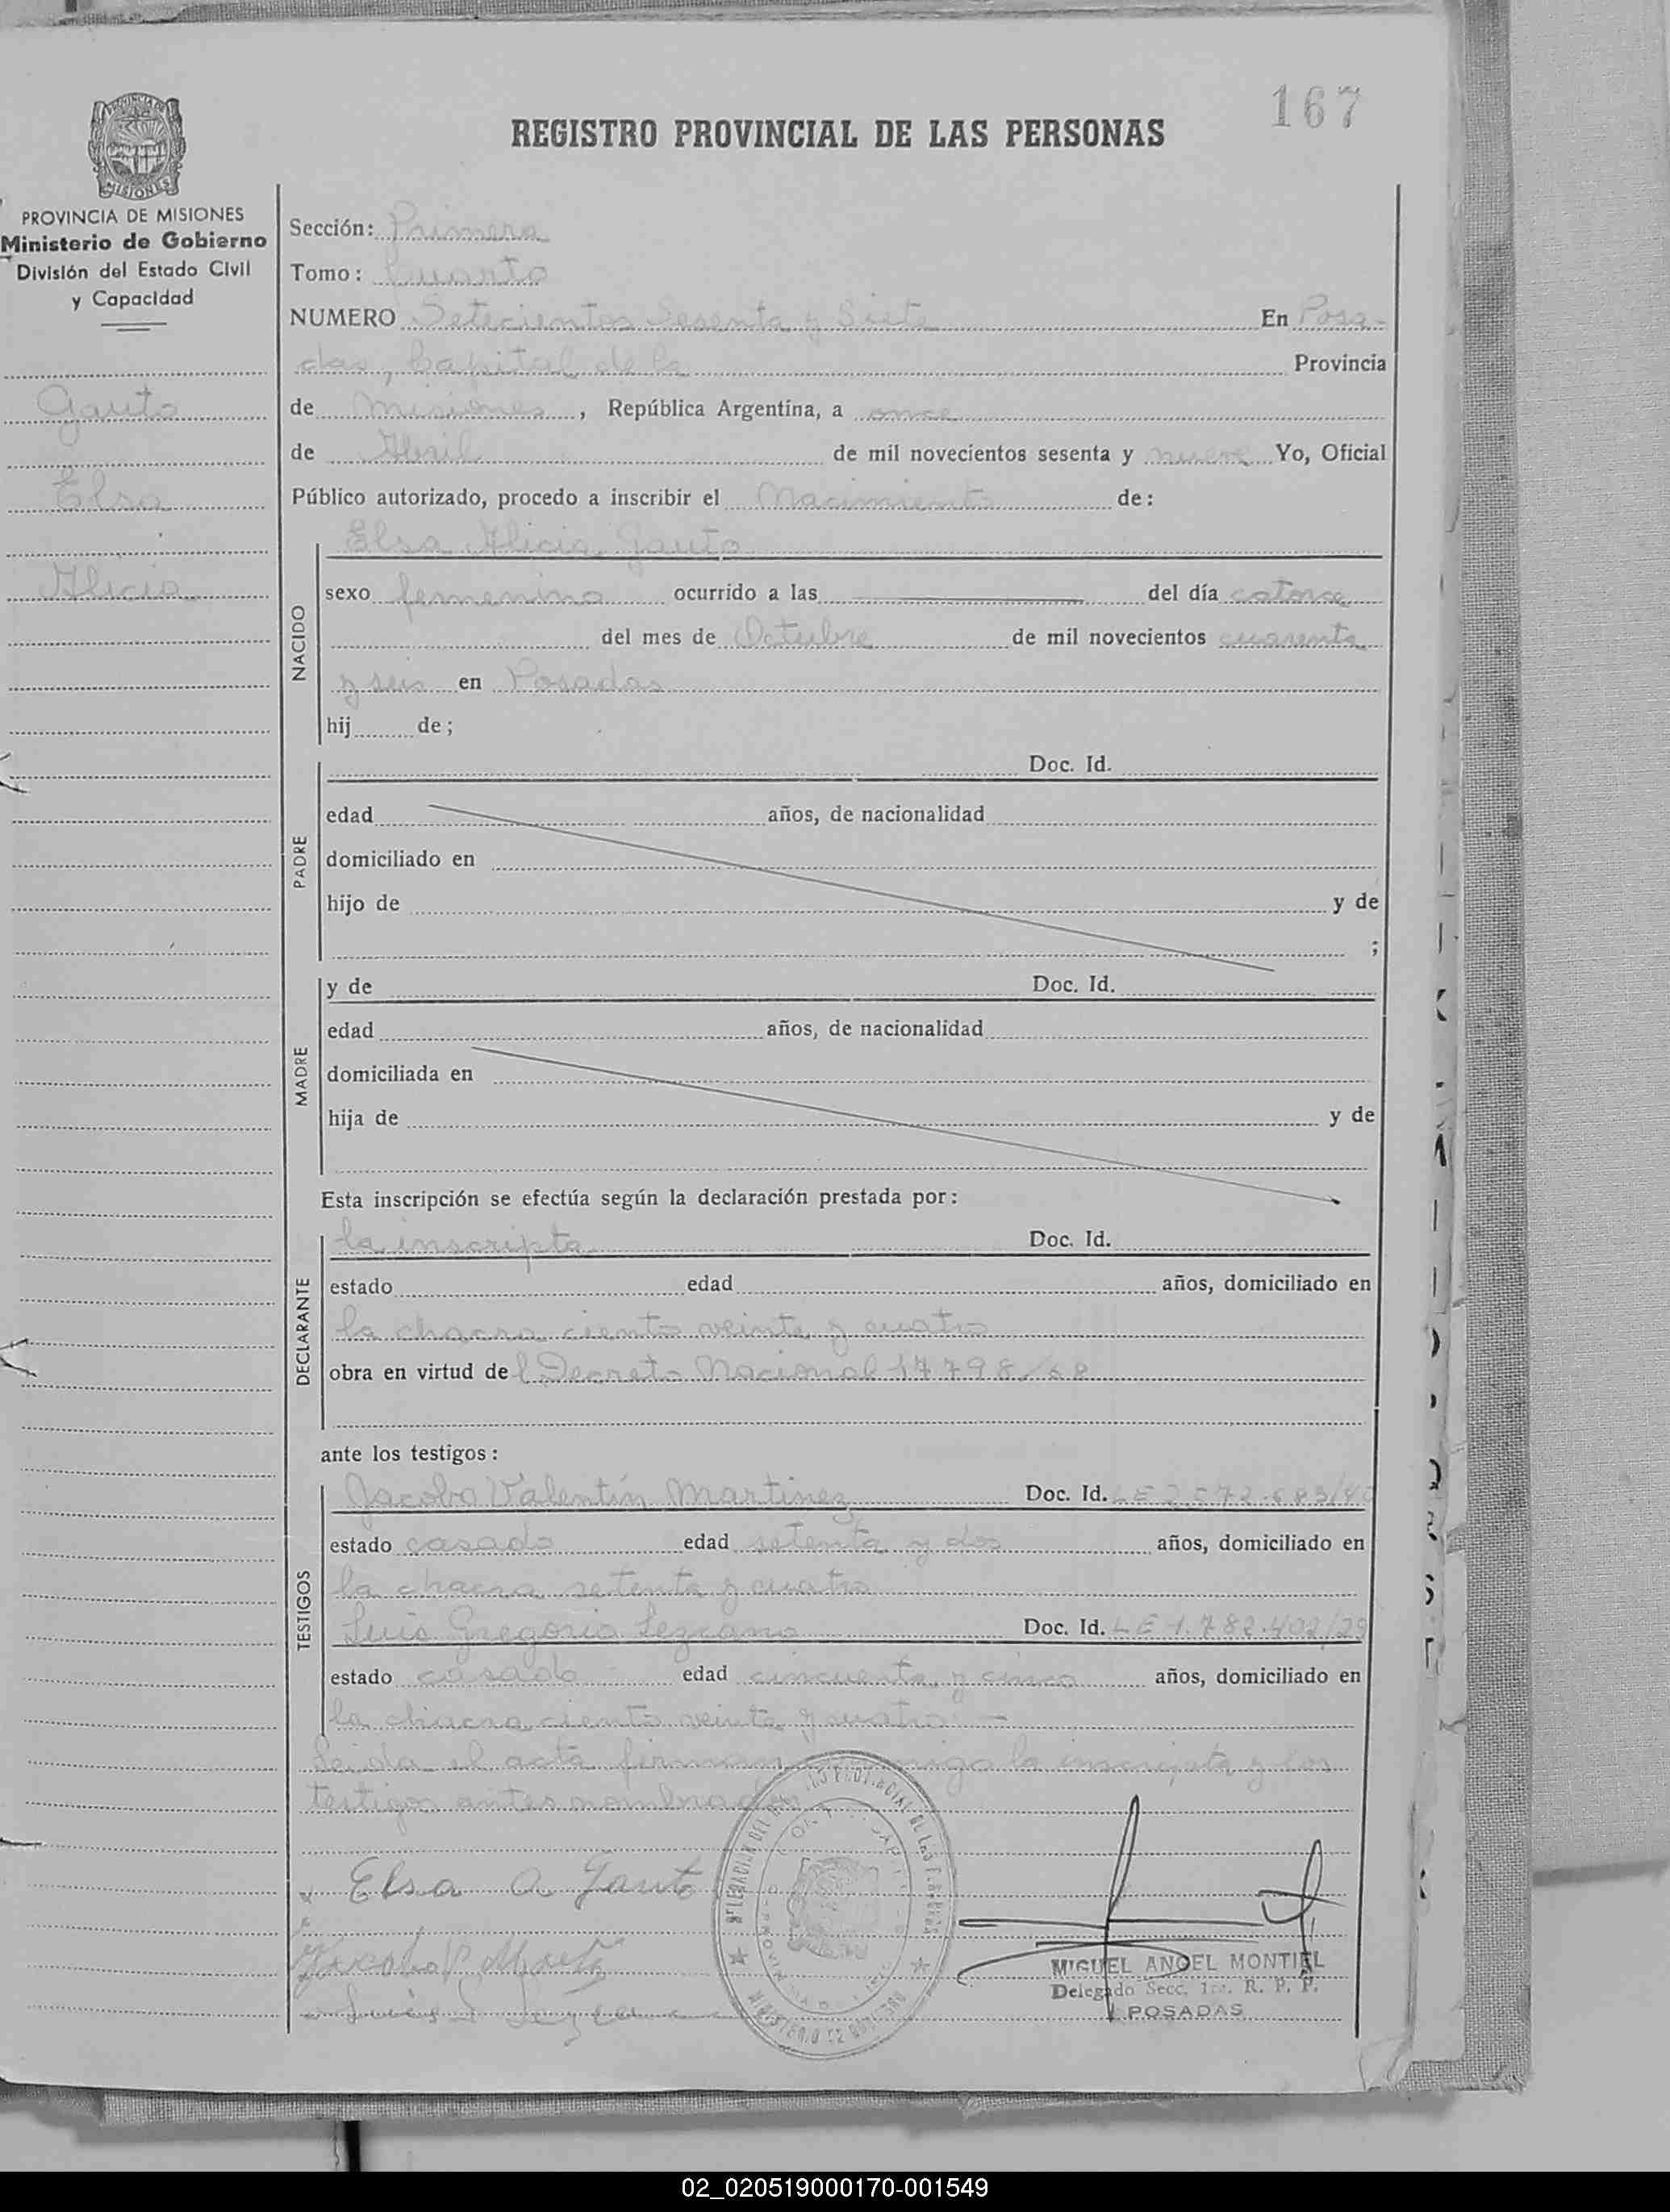 167
REGISTRO PROVINCIAL DE LAS PERSONAS
PROVINCIA DE MISIONES
Ministerio de Gobierno
División del Estado Civil
y Capacidad
Gauto
Elsa
Alicia
Sección: Primera
Tomo: Cuarto
NUMERO Setecientos Sesenta y Siete En Posa-
das, Capital de la Provincia
de Misiones, República Argentina, a once
de Abril de mil novecientos sesenta y nueve Yo, Oficial
Público autorizado, procedo a inscribir el Nacimiento de:
NACIDO
Elsa Alicia Gauto
sexo femenino ocurrido a las del día catorce
del mes de Octubre de mil novecientos cuarenta
y seis en Posadas
hij de;
PADRE
Doc. Id.
edad años, de nacionalidad
domiciliado en
hijo de y de
;
MADRE
y de Doc. Id.
edad años, de nacionalidad
domiciliada en
hija de y de
Esta inscripción se efectúa según la declaración prestada por:
DECLARANTE
la inscripta Doc. Id.
estado edad años, domiciliado en
la chacra ciento veinte y cuatro
obra en virtud del Decreto Nacional 17798/68
ante los testigos:
TESTIGOS
Jacobo Valentín Martinez Doc. Id. LE
estado casado edad setenta y dos años, domiciliado en
la chacra setenta y cuatro
Luis Gregorio Lezcano Doc. Id. LE 1.782.402/29
estado casado edad cincuenta y cinco años, domiciliado en
la chacra ciento veinte y cuatro.-
Leida el acta firman conmigo la inscripta y los
testigos antes nombrados
Elsa A Gauto
MIGUEL ANGEL MONTIEL
Delegado Secc. 1ra. R. P. P.
POSADAS
02_020519000170-001549